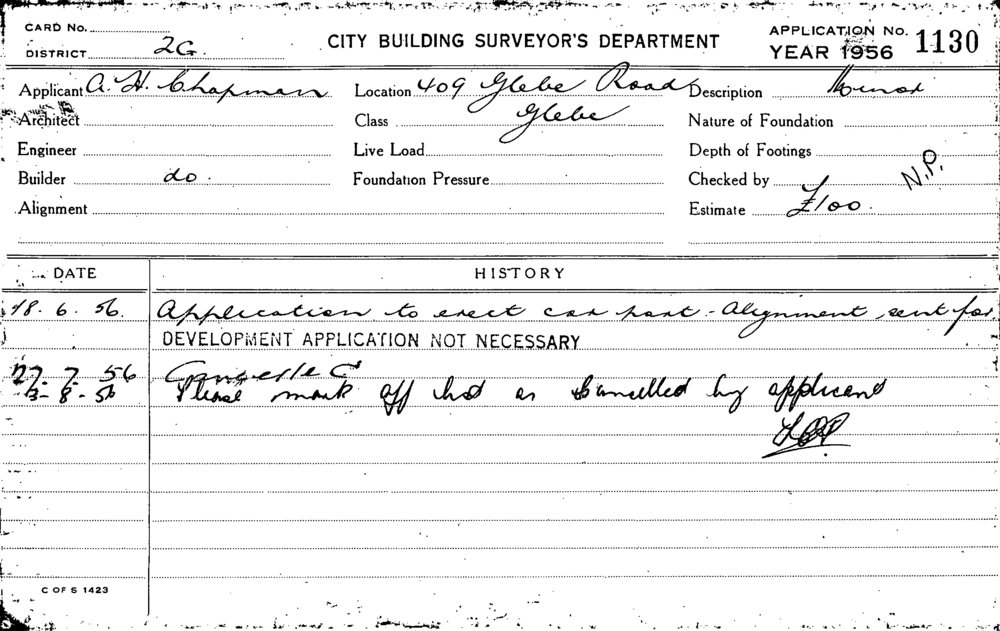 CARD No.
DISTRICT 2G.
CITY BUILDING SURVEYOR'S DEPARTMENT
APPLICATION No. 1130
YEAR 1956
Applicant A. H. Chapman Location 409 Glebe Road Description Minor
Architect Class Glebe Nature of Foundation
Engineer Live Load Depth of Footings
Builder do. Foundation Pressure Checked by N.P.
Alignment Estimate £100.
DATE HISTORY
18. 6. 56. Application to erect car port - Alignment sent for
DEVELOPMENT APPLICATION NOT NECESSARY
27. 7. 56
13-8-56 Please mark off list as cancelled by applicant
C OF S 1423